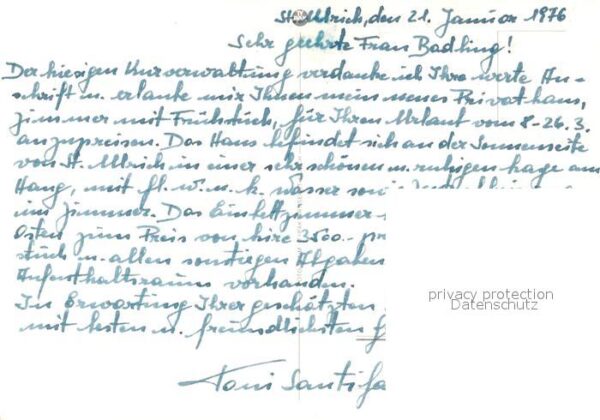 St. Ulrich, den 21. Januar 1976
Sehr geehrte Frau Badling!
Der hiesigen Kurverwaltung verdanke ich Ihre werte An-
schrift u. erlaube mir Ihnen mein neues Privathaus,
Zimmer mit Frühstück, für Ihren Urlaub vom 8-26.3.
anzupreisen. Das Haus befindet sich an der Sonnenseite
von St. Ulrich in einer sehr schönen u. ruhigen Lage am
Hang, mit fl. w. u. k. Wasser
im Zimmer. Das Einbettzimmer
Osten zum Preis von Lire 3500.-
stück u. allen sonstigen Abgaben
Aufenthaltsraum vorhanden.
In Erwartung Ihrer geschätzten
mit besten u. freundlichsten
Toni Santifa
privacy protection
Datenschutz